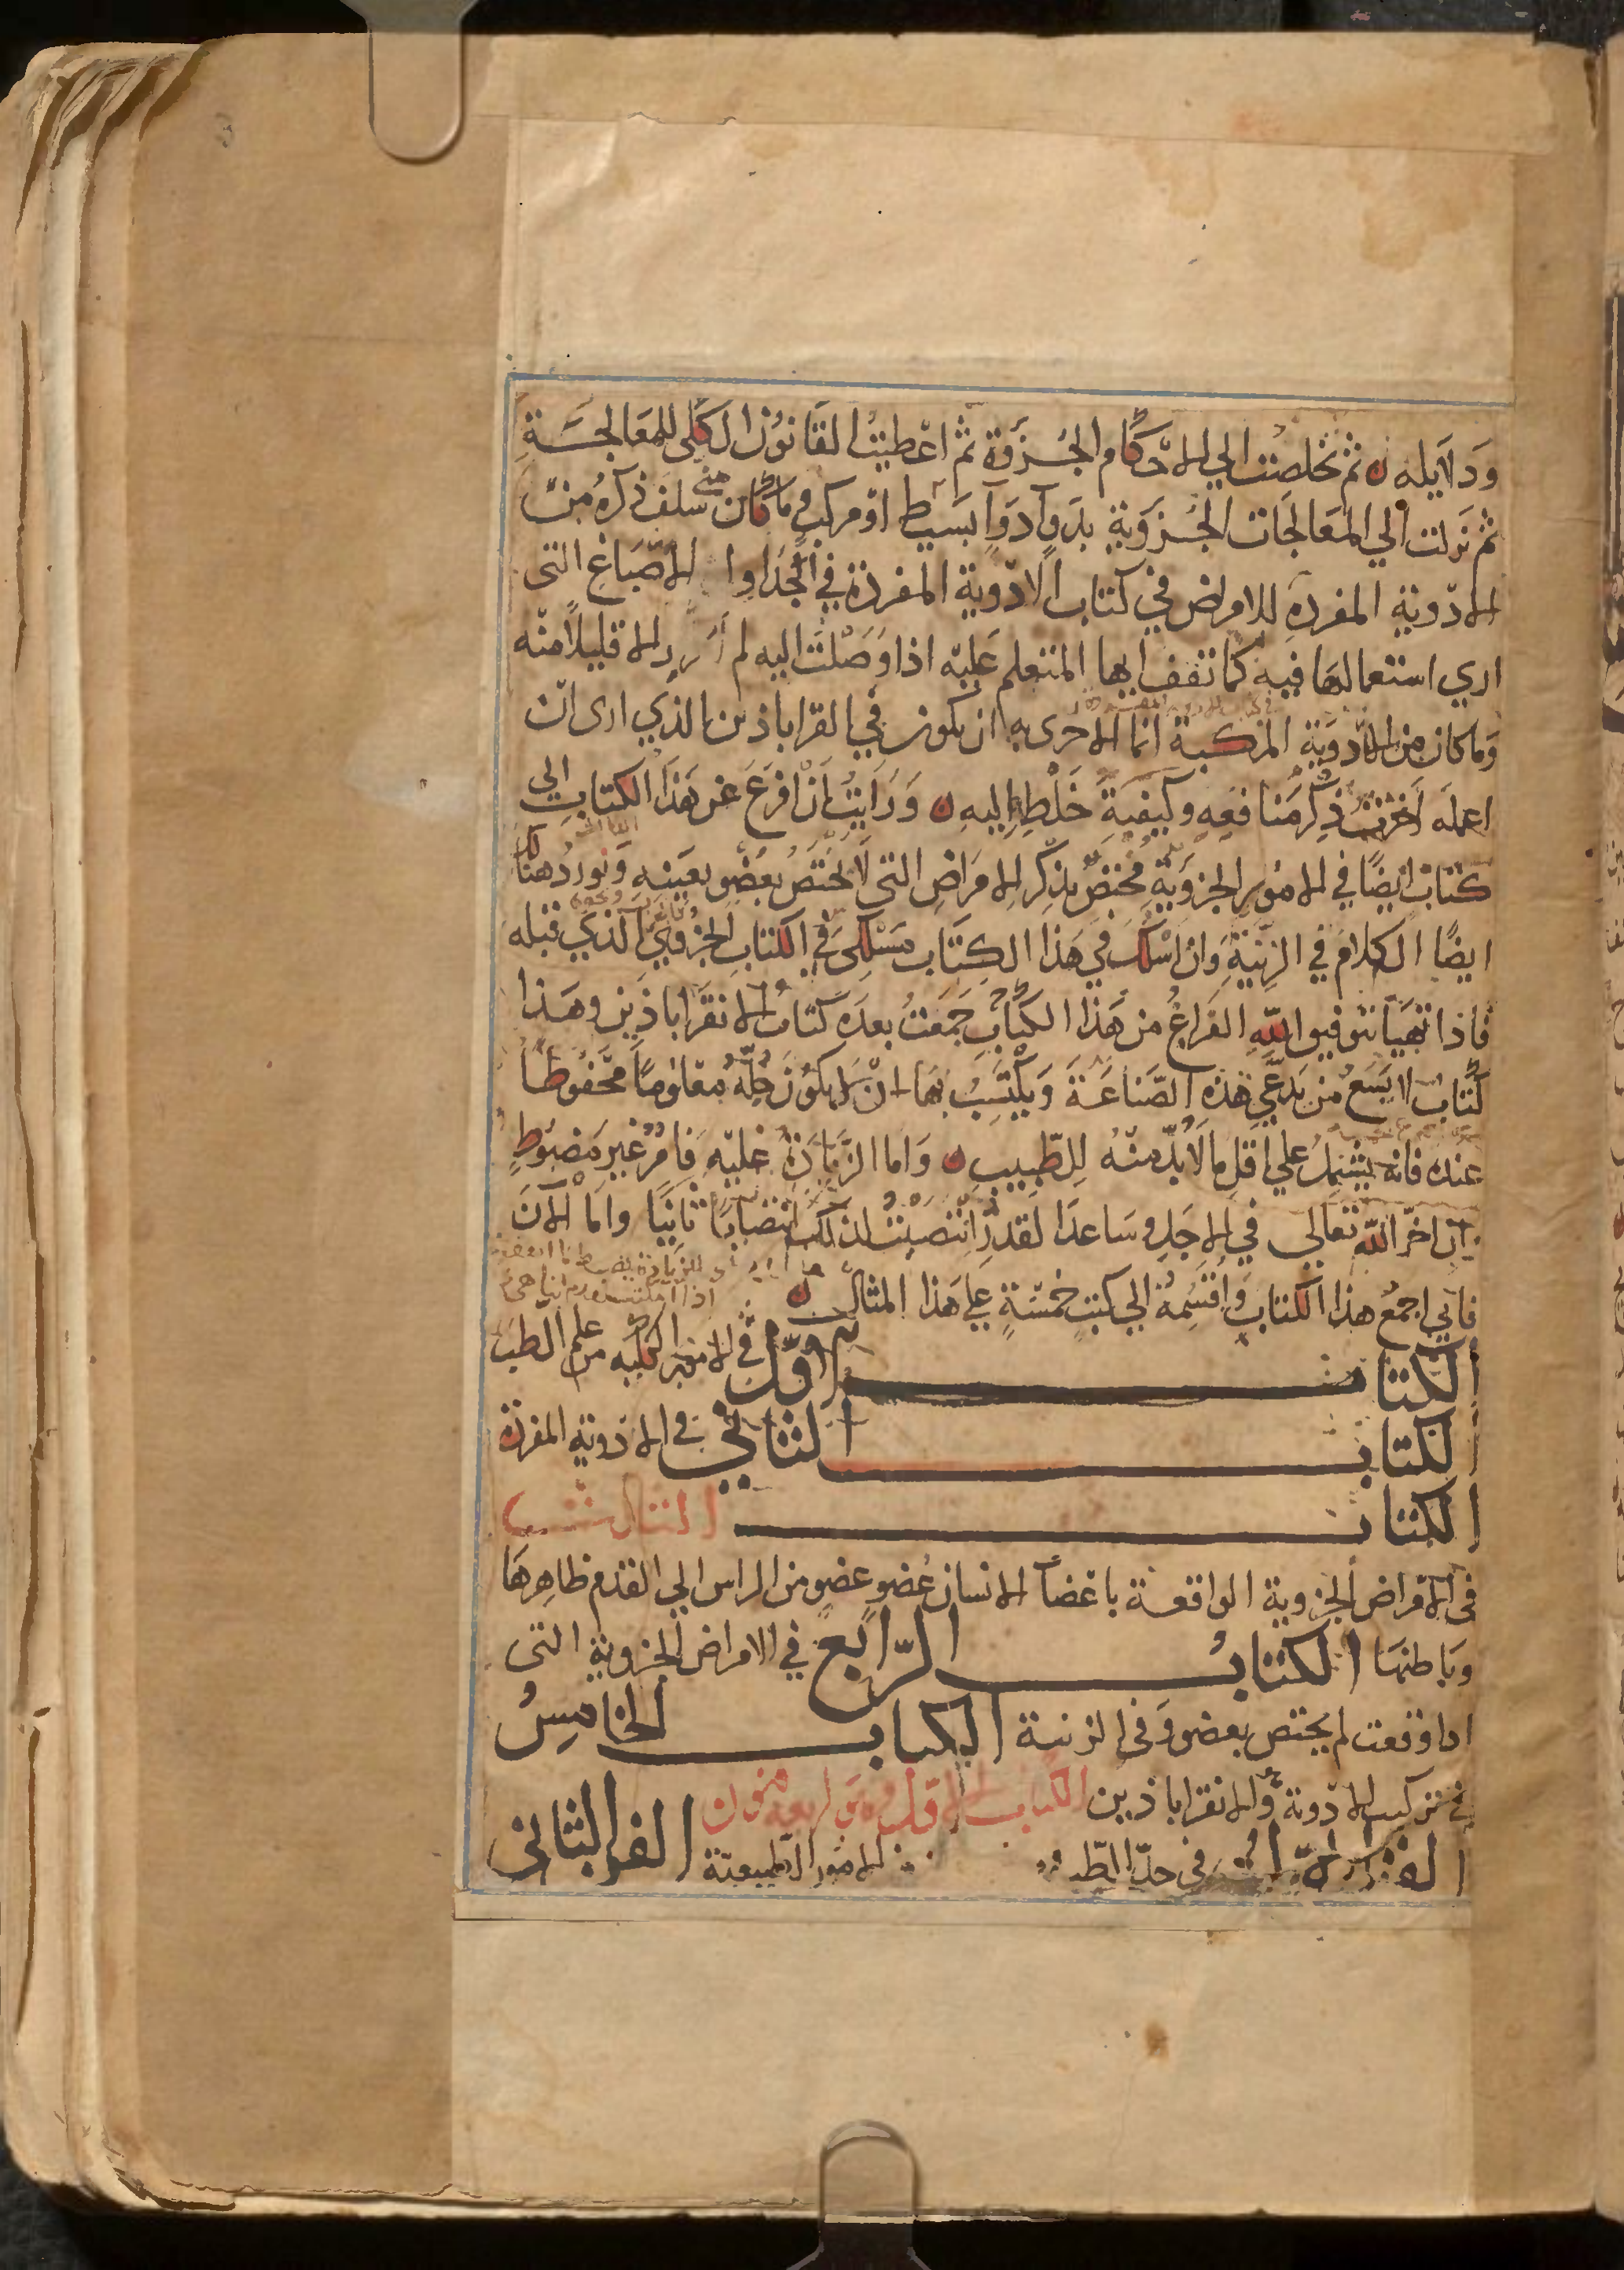 ودلايله ثم تخلصت الي الاحكام الجزوة ثم اعطيت القانون الكلي للمعالجة
ثم نزلت الي المعالجات الجزوية بدوآ دوآ بسيط او مركب وما كان سلف ذكره من
الادوية المفردة للامراض في كتاب الادوية المفردة في الجداول الاصباغ التي
اري استعمالها فيه كما تقف ايها المتعلم عليه اذا وصلت اليه لم ارد الا قليلا منه
وما كان من الادوية المركبة انما الاحرى به ان يكون في القراباذين الذي ارى ان
اعمله اخرت ذكر منافعه وكيفية خلطه اليه ورايت ان افرغ عن هذا الكتاب الي
كتاب ايضا في الامور الجزوية مختص بذكر الامراض التي لا تختص بعضو بعينه ونورد هنالك
ايضا الكلام في الزينة وان اسلك في هذا الكتاب مسلكي في الكتاب الجزوي الذي قبله
فاذا تهيا بتوفيق الله الفراغ من هذا الكتاب جمعت بعده كتاب الانقراباذين وهذا
كتاب لا يسع من يدعي هذه الصناعة ويكتسب بها ان لا يكون جله معلوما محفوظا
عنده فانه يشتمل علي اقل ما لا بد منه للطبيب واما الزيادة عليه فامر غير مضبوط
ان اخر الله تعالي في الاجل وساعد القدر انتصبت لذلك انتصابا ثانيا واما الان
فاني اجمع هذا الكتاب واقسمه الي كتب خمسة علي هذا المثال
الكتاب الاول في الامور الكلية من علم الطب
الكتاب الثاني في الادوية المفردة
الكتاب الثالث
في الامراض الجزوية الواقعة باعضآ الانسان عضو عضو من الراس الي القدم ظاهرها
وباطنها الكتاب الرابع في الامراض الجزوية التي
اذا وقعت لم يختص بعضو وفي الزينة الكتاب الخامس
في تركيب الادوية والانقراباذين الكتاب الاول وهو اربعة فنون
الفن الاول في حد الطب الامور الطبيعية الفن الثاني